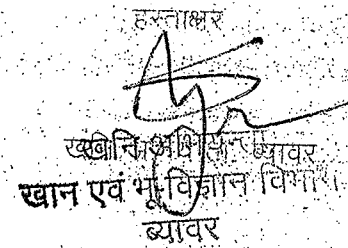 हस्ताक्षर
खनि अभियन्ता ब्यावर
खान एवं भू-विज्ञान विभाग
ब्यावर